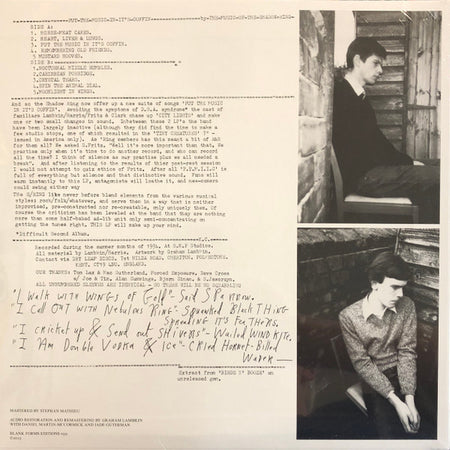 -PUT-THE-MUSIC-IN-IT'S-COFFIN- -by-THE-MUSIC-OF-THE-SHADOW-RING-
SIDE A:
1. HORSE-MEAT CAKES.
2. HEART, LIVER & LUNGS.
3. PUT THE MUSIC IN IT'S COFFIN.
4. REMEMBERING OLD FRIENDS.
5 MUSTARD HOOVES.
SIDE B:
1.NOCTURNAL MIDDLE RUMBLES.
2.CARIBBEAN PORRIDGE.
3.CRYSTAL TEARS.
4.SPIN THE ANIMAL DIAL.
5.MOONLIGHT IN WINGS.
And so the Shadow Ring now offer up a new suite of songs 'PUT THE MUSIC
IN IT'S COFFIN'. Avoiding the symptoms of D.S.A. syndrome* the cast of
familiars Lambkin/Harris/Fritz & Clark chase up 'CITY LIGHTS' and make
one or two small changes in sound. Inbetween these 2 LP's the band
have been largely inactive (although they did find the time to make a
few studio stops, one of which resulted in the
them all? He asked D.Fritz. "Well it's more important than that, We
practise only when it's time to do another record, and who can record
all the time? I think of silence as our practise plus we all needed a
break". And after listening to the results of thier post-rest session
I would not attempt to quiz ethics of Fritz. After all 'T.P.M.I.I.C' is
full of everything but silence and that distinctive sound. Fans will
warm instantly to this LP, antagonists will loathe it, and new-comers
could swing either way
The S/RING like never before blend elements from the various musical
styles: rock/folk/whatever, and serve them in a way that is neither
improvised, pre-constructed nor re-creatable, only uniquely thes. Of
course the criticism has been leveled at the band that they are nothing
more than some half-baked ad-lib unit only semi-concentrating on
getting the tunes right, THIS LP will make up your mind.
*Difficult Second Album.
Recorded during the summer months of 1994, At S.H.P Studios.
All material by Lambkin/Harris. Artwork by Graham Lambkin.
Contact via DRY LEAF DISCS, 141 WEAR ROAD, CHERITON, FOLKESTONE,
KENT. CT19 ENGLAND.
OUR THANKS: Tom Lax & Mac Sutherland, Forced Exposure, Dave Cross
ALL UNDERNEATH SLEEVES ARE IDENTICAL - SO THERE WILL BE NO SQUABBLING
"I WALK WITH WINGS OF GOLD" - SAID SPARROW.
"I CALL OUT WITH NEBULOUS RING" - SQUAWKED BLACK THING
SPREADING IT'S FEATHERS.
"I CRICKET UP & SEND OUT SHIVERS" - WAILED WIND KITE.
"I AM DOUBLE VODKA & ICE" - CRIED HORNET-BILLED
WADER —
Extract from 'BIRDS Y' BOOZE' an
unreleased gem.
MASTERED BY STEPHAN MATHIEU
AUDIO RESTORATION AND REMASTERING BY GRAHAM LAMBKIN
WITH DANIEL MARTIN-MCCORMICK AND JADE GUTERMAN.
BLANK FORMS EDITIONS
©2023